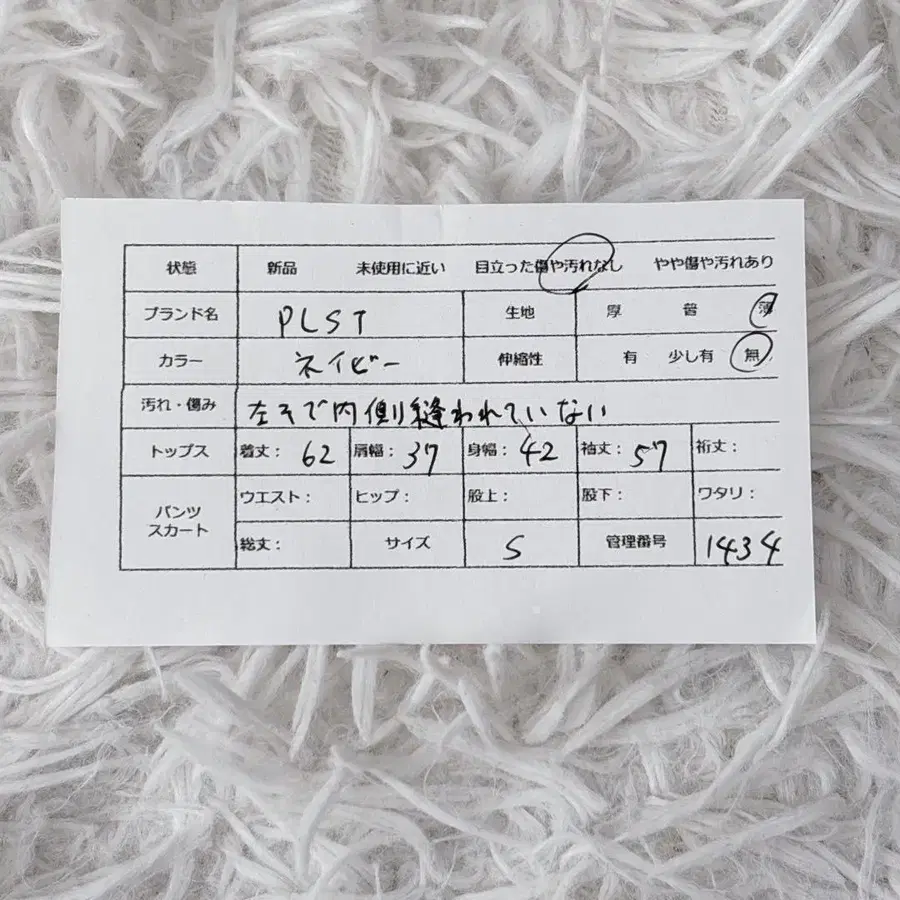 状態 新品 未使用に近い 目立った傷や汚れなし やや傷や汚れあり
ブランド名 PLST 生地 厚 普 薄
カラー ネイビー 伸縮性 有 少し有 無
汚れ・傷み 左そで内側縫われていない
トップス 着丈: 62 肩幅: 37 身幅: 42 袖丈: 57 裄丈:
パンツ ウエスト: ヒップ: 股上: 股下: ワタリ:
スカート 総丈: サイズ S 管理番号 1434